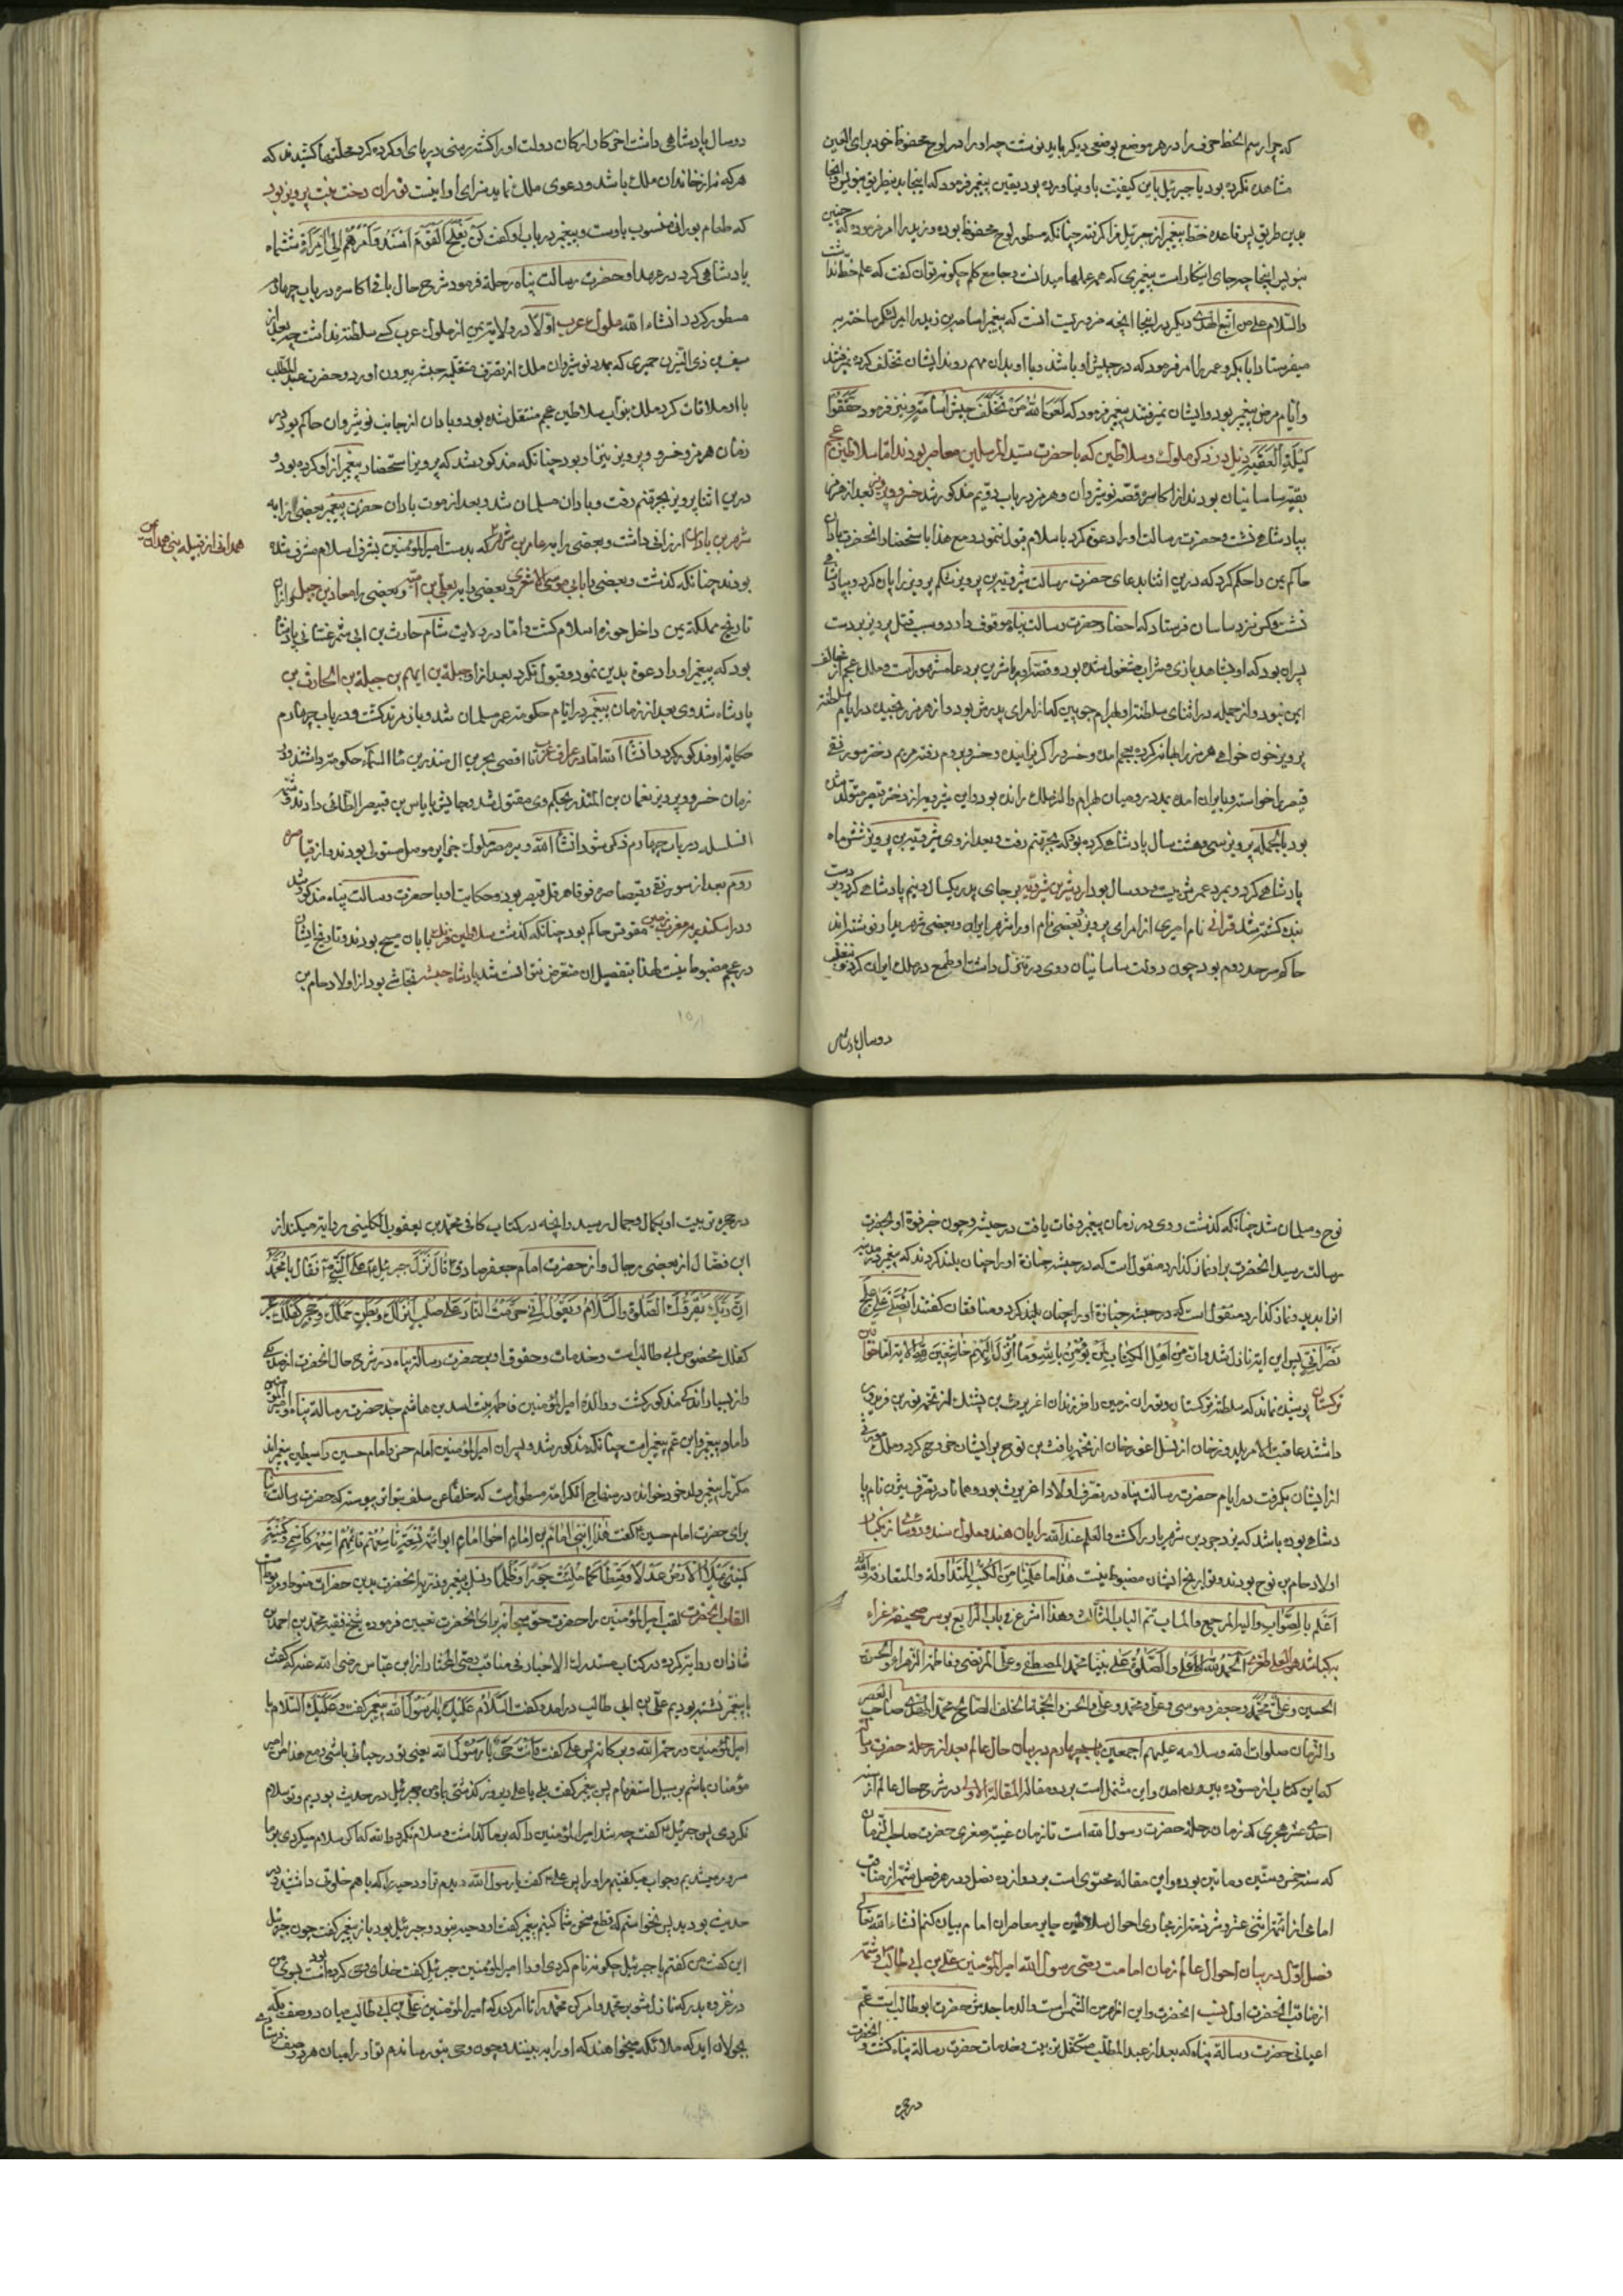 که چرا رسم الخط حرف را در هر موضع بوضعی دیکر باید نوشت چه او را در لوح محفوظ خود برای العین
مشاهده نکرده بود یا جبرئیل باین کیفیت باو نیاورده بود یقین پیغمبر فرمود که اینجا بدین طریق بنویس و انجا
بدین طریق پس قاعده خط پیغمبر از جبرئیل فرا کرفته چنانکه مسطور لوح محفوظ بوده و زید را امر فرموده که چنین
بنویس اینجا چه جای انکار است پیغمبری که همه علمها میدانست و جامع کلم چکونه توان کفت که علم خط ندانست
والسلام علی من اتبع الهدی دیکر در اینجا انچه مرویست انست که پیغمبر اسامه بن زید را امیر لشکر ساخته
میفرستاد ابابکر و عمر را امر فرمود که در جیش او باشند و با او بدان مهم روند ایشان تخلف کرده نرفتند
و ایام مرض پیغمبر بود و ایشان نمیرفتند پیغمبر فرمود که لعن الله من تخلف جیش اسامة و نیز فرمود
لیلة العقبة ذیل در ذکر ملوک و سلاطین که با حضرت سید المرسلین معاصر بودند اما سلاطین عجم
بقیه ساسانیان بودند از اکاسره قصه نوشیروان و هرمز در باب دویم مذکور شد خسرو پرویز بعد از هرمز
بپادشاهی نشست و حضرت رسالت او را دعوة کرد باسلام قبول ننمود و مع هذا باستحضار انحضرت باذان
حاکم یمن را حکم کرد که درین اثنا بدعای حضرت رسالت شیرویه بن پرویز شکم پرویز را پاره کرد و بپادشاهی
نشست و کس نزد ساسان فرستاد که احضار حضرت رسالت پناه موقوف دارد و سبب قتل پرویز بردست
پسران بود که او بشاهد بازی و شراب مشغول شده بود و قصه او با شیرین بر عامه مشهور است و ملک عجم از مخالف
ایمن نبود و از جمله در اثنای سلطنة او بهرام چوبین که از امرای پدرش بود و از هرمز رنجیده در ایام سلطنة
پرویز خون خواهی هرمز را بهانه کرده بعجم امد و خسرو را کریزانیده و خسرو بروم رفته مریم دختر موریقی
قیصر را خواسته و بایران امده بمدد رومیان بهرام را از ملک رانده بود و این شیرویه از دختر قیصر متولد شده
بود بالجمله پرویز سی و هشت سال پادشاهی کرده بود که بجهنم رفت و بعد از وی شیرویه بن پرویز شش ماه
پادشاهی کرد و بمرد عمرش بیست و دو سال بود اردشیر بن شیرویه بر جای پدر یکسال و نیم پادشاهی کرد و بر دست
بنده کشته شد فرائی نام امیری از امرای پرویز و بعضی نام او را شهر ایران و بعضی شهر یدار نوشته اند
حاکم سرحد روم بود چون دولت ساسانیان روی در تنزل داشت او طمع در ملک ایران کرد بتغلب
دو سال پادشاهی
دو سال پادشاهی داشت اخر کار ارکان دولت او را کشته رسنی در پای او کرده کرد محلتها کشیدند که
هر که نه از خاندان ملک باشد و دعوی ملک نماید سزای او اینست توران دخت بنت پرویز بود
که طعام بورانی منسوب باوست و پیغمبر در باب او کفت لن یفلح القوم اسندوا امرهم الی امراة ششماه
پادشاهی کرد در عهد او حضرت رسالت پناه رحلة فرمود شرح حال باقی اکاسره در باب چهارم
مسطور کردد انشاء الله ملوک عرب اولا در ولایة یمن از ملوک عرب کسی سلطنة نداشت چه بعد از
سیف بن ذی الیزن حمیری که بمدد نوشیروان ملک از تصرف متغلبه حبشه بیرون اورد و حضرت عبد المطلب
با او ملاقات کرد ملک بنواب سلاطین عجم منتقل شده بود و باذان از جانب نوشیروان حاکم بود در
زمان هرمز و خسرو پرویز نیز او بود چنانکه مذکور شد که پرویز استحضار پیغمبر از او کرده بود و
درین اثنا پرویز بجهنم رفت و باذان مسلمان شد و بعد از موت باذان حضرت پیغمبر بعضی از را به
شهر بن باذان ارزانی داشت و بعضی را به عامر بن شهر که بدست امیر المؤمنین بشرف اسلام مشرف شده
همدانی از قبیله بنی همدان
بودند چنانکه کذشت و بعضی را بابی موسی الاشعری و بعضی را به یعلی بن امیه و بعضی را بمعاذ بن جبل و ازان
تاریخ مملکة یمن داخل حوزه اسلام کشت و اما در ولایت شام حارث بن ابی شمر غسانی پادشاه
بود که پیغمبر او را دعوة بدین نمود و قبول نکرد بعد از او جبلة بن ایهم بن جبلة بن الحارث
پادشاه شد وی بعد از زمان پیغمبر در ایام حکومة عمر مسلمان شد و باز مرتد کشت و در باب چهارم
حکایة او مذکور کردد انشاء الله اما در عراق عرب تا اقصی بحرین ال منذر بن ماء السماء حکومة داشتند و در
زمان خسرو پرویز نعمان بن المنذر بحکم وی مقتول شد و جایش بایاس بن قبیصه الطائی دادند و تتمه
السلسله در باب چهارم ذکر شود انشاء الله و بر مصر ملوک جزایر موصل مستولی بودند و از قیاصره
روم بعد از موریقی و قیصاصره فوقا هرقل قیصر بود و حکایت او با حضرت رسالت پناه مذکور شد
و در اسکندریه و مغرب زمین مقوقس حاکم بود چنانکه کذشت سلاطین فرنک بابان مسیح بودند و تاریخ ایشان
در عجم مضبوط نیست لهذا بتفصیل ان متعرض نتوانست شد پادشاه حبشه نجاشی بود از اولاد حام بن
نوح و مسلمان شد چنانکه کذشت و وی در زمان پیغمبر وفات یافت در حبشه و چون خبر فوة او بحضرت
رسالت رسید انحضرت برا و نماز کذارد منقول است که در حبشه جنازة او را چنان بلند کردند که پیغمبر در مدینه
انرا بدید و نماز کذارد منقول است که در حبشه جنازة او را چنان بلند کرد و منافقان کفتند اتصلی علی علج
نصرانی پس این ایة نازل شد و ان من اهل الکتاب لمن یؤمن بالله وما انزل الیهم خاشعین لله الایه اما خواقین
ترکستان پوشیده نماند که سلطنة ترکستان و توران زمین را فرزندان اغریرث بن پشنک از تخمه تور بن فریدون
داشتند عاقبت الامر یلدوزخان از نسل اغوزخان از تخمه یافث بن نوح بر ایشان خروج کرد و ملک
از ایشان بکرفت در ایام حضرت رسالت پناه در تصرف اولاد اغریرث بود و همانا در تصرف بیژن نام پا
دشاهی بوده باشد که یزدجرد بن شهریار را کشت و العلم عند الله رایان هند و ملوک سند و روشا زنکبار
اولاد حام بن نوح بودند و تواریخ ایشان مضبوط نیست هذا ما علمنا من الکتب المتداولة والمتعارفة والله
اعلم بالصواب والیه المرجع والماب تم الباب الثالث وهذا اشرع فی باب الرابع بر سر صحیفه غراء
الحمد لله والصلوة علی نبینا محمد المصطفی وعلی المرتضی وفاطمة الزهراء والحسن
الحسین وعلی ومحمد وجعفر وموسی وعلی ومحمد وعلی والحسن والحجة الخلف الصالح محمد المهدی صاحب العصر
والزمان صلوات الله وسلامه علیهم اجمعین باب چهارم در بیان حال عالم بعد از رحلة حضرت رسالت
که این کتاب از مسوده بیرون امد و این مشتمل است بر دو مقاله المقالة الاولی در شرح حال عالم از سنه
احدی عشر هجری که زمان رحلة حضرت رسول الله است تا زمان غیبة صغری حضرت صاحب الزمان
که سنه خمس و ستین و مائتین بوده و این مقاله محتوی است بر دوازده فصل و در هر فصل شمه از مناقب
امامی از ائمه اثنی عشر و شرذمه از مجاری احوال سلاطین جابر معاصر ان امام بیان کنم انشاء الله تعالی
فصل اول در بیان احوال عالم زمان امامت وصی رسول الله امیر المؤمنین علی بن ابی طالب و شمه
از مناقب انحضرت اول نسب انحضرت و این اظهر من الشمس است والد ماجدش حضرت ابوطالب است عم
اعیانی حضرت رسالة پناه که بعد از عبد المطلب متکفل تربیت و خدمات حضرت رسالة پناه کشت و انحضرت
در حجره
در حجره تربیت او بکمال و جمال رسید و انچه در کتاب کافی محمد بن یعقوب الکلینی روایة میکند از
ابن فضال از بعضی رجال و از حضرت امام جعفر صادق ع قال نزل جبرئیل ع علی النبی ص فقال یا محمد
ان ربک یقرئک الصلوة والسلام ویقول انی حرمت النار علی صلب انزلک وبطن حملک وحجر کفلک
کفلک مخصوص ابی طالب است و خدمات و حقوق او بر حضرت رسالة پناه در شرح حال انحضرت از صد یکی
و از بسیار اندکی مذکور کشت و والدۀ امیر المؤمنین فاطمه بنت اسد بن هاشم جد حضرت رسالة پناه و امیر المؤمنین
داماد پیغمبر و ابن عم پیغمبر است چنانکه مذکور شد و پسران امیر المؤمنین امام حسن و امام حسین را سبطین پیغمبراند
مکرر پیغمبر ولد خود خواند در منهاج الکرامة مسطور است که خلفا عن سلف بتواتر پیوسته که حضرت رسالت پناه
برای حضرت امام حسین کفت هذا ابنی امام بن امام اخو امام ابو ائمة تسعة تاسعهم قائمهم اسمه کاسمی وکنیته
کنیتی یملأ الارض عدلا وقسطا کما ملئت جورا وظلما و نسل پیغمبر و ذریه انحضرت بدین حضرات منوط و مربوط است
القاب انحضرت لقب امیر المؤمنین را حضرت حق سبحانه برای انحضرت تعیین فرموده شیخ فقیه محمد بن احمد بن
شاذان روایة کرده در کتاب مسند رات الاخبار فی مناقب وصی المختار از ابن عباس رضی الله عنه که کفت
با پیغمبر نشسته بودیم علی بن ابی طالب درامد و کفت السلام علیک یا رسول الله پیغمبر کفت وعلیک السلام یا
امیر المؤمنین ورحمة الله وبرکاته پس علی کفت وانت حی یا رسول الله یعنی تو در حیاتی باشی و مع هذا من امیر
مؤمنان باشم بر سبیل استفهام پس پیغمبر کفت بلی یا علی دیروز کذشتی با من و جبرئیل در حدیث بودیم و تو سلام
نکردی پس جبرئیل کفت چه شد امیر المؤمنین را که بر ما کذشت و سلام نکرد والله که اکر سلام میکردی بر ما
مسرور میشدیم و جواب میکفتیم مر او را پس علی ع کفت یا رسول الله دیدم تو او دحیه را که با هم خلوتی داشتید و در
حدیث بودید پس نخواستم که قطع سخن شما کنم پیغمبر کفت او دحیه نبود و جبرئیل بود باز پیغمبر کفت چون جبرئیل
این کفت من کفتم یا جبرئیل چکونه نام کردی او را امیر المؤمنین جبرئیل کفت خدای وحی کرده بود بسوی من
در غزوه بدر که نازل شو بر محمد و امر کن محمد را تا امر کند که امیر المؤمنین علی بن ابی طالب میان دو صف
بجولان اید که ملائکه میخواهند که او را به بینند و چون وحی بتو رساندم تو او را میان هر دو صف فرستادی